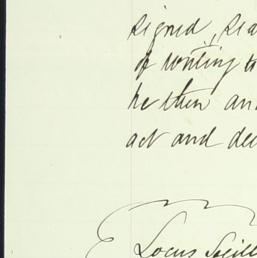 signed, sea
of writing to
he then an
act and de
Locus Sigill